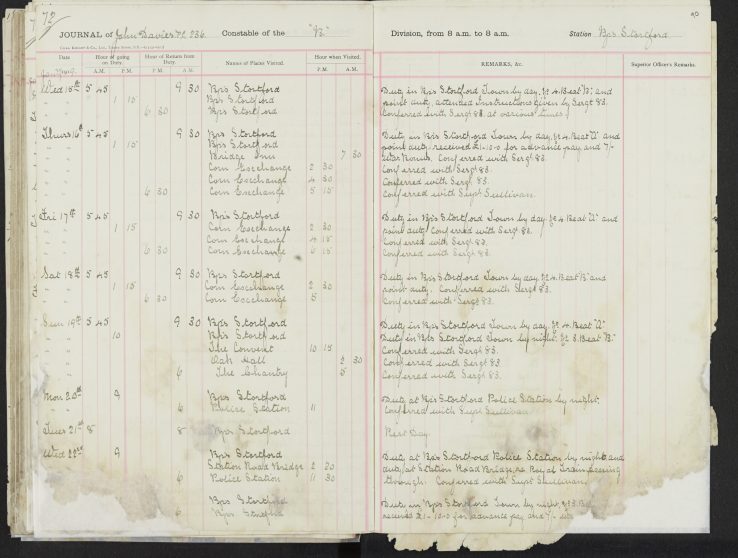 72
90
JOURNAL of John Davies PC 236. Constable of the "B" Division, from 8 a.m. to 8 a.m. Station Bp's Stortford
Date Hour of going on Duty. Hour of Return from Duty. Names of Places Visited. Hour when Visited. REMARKS, &c. Superior Officer's Remarks.
A.M. P.M. A.M. P.M. P.M. A.M.
1919
Wed 15th 5 45 9 30 Bp's Stortford Duty in Bp's Stortford Town by day, No 4. Beat "B" and
" " 1 15 Bp's Stortford point duty, attended Instructions given by Sergt 83.
" " 6 30 Bp's Stortford Conferred with Sergt 83. at various times.
Thurs 16th 5 45 9 30 Bp's Stortford Duty in Bp's Stortford Town by day, No 4. Beat "A" and
" " 1 15 Bp's Stortford point duty received £1-10-0 for advance pay and 7/-
" " Bridge Inn 7 30 War Bonus. Conferred with Sergt 83.
" " Corn Exchange 2 30 Conferred with Sergt 83.
" " Corn Exchange 4 30 Conferred with Sergt 83.
" " 6 30 Corn Exchange 5 15 Conferred with Supt Sullivan.
Fri 17th 5 45 9 30 Bp's Stortford Duty in Bp's Stortford Town by day, No 4. Beat "A" and
" " 1 15 Corn Exchange 2 30 point duty. Conferred with Sergt 83.
" " Corn Exchange 4 15 Conferred with Sergt 83.
" " 6 30 Corn Exchange 6 15 Conferred with Sergt 83.
Sat 18th 5 45 9 30 Bp's Stortford Duty in Bp's Stortford Town by day, No 4. Beat "B" and
" " 1 15 Corn Exchange 2 30 point duty. Conferred with Sergt 83.
" " 6 30 Corn Exchange 5 Conferred with Sergt 83.
Sun 19th 5 45 9 30 Bp's Stortford Duty in Bp's Stortford Town by day, No 4. Beat "A"
" " 10 Bp's Stortford Duty in Bp's Stortford Town by night, No 3. Beat "B"
" " The Convent 10 15 Conferred with Sergt 83.
" " Oak Hall 2 30 Conferred with Sergt 83.
" " 6 The Chantry 5 Conferred with Sergt 83.
Mon 20th 9 Bp's Stortford Duty at Bp's Stortford Police Station by night.
" " 6 Police Station 11 Conferred with Supt Sullivan.
Tues 21st 8 8 Bp's Stortford Rest Day.
Wed 22nd 9 Bp's Stortford Duty at Bp's Stortford Police Station by night, and
Station Road Bridge 2 20 duty at Station Road Bridge, re Royal Train passing
6 Police Station 11 30 through. Conferred with Supt Sullivan.
Bp's Stortford Duty in Bp's Stortford Town by night,
6 Bp's Stortford received £1-10-0 for advance pay and 7/-